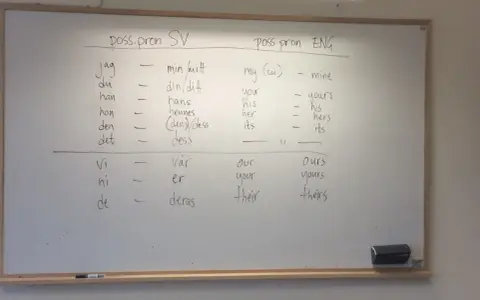 poss.pron SV poss.pron ENG
jag – min/mitt my (sg) – mine
du – din/dit your – yours
han – hans his – his
hon – hennes her – hers
den – (dens)/dess its – its
det – dess — " —
vi – vår our ours
ni – er your yours
de – deras their theirs